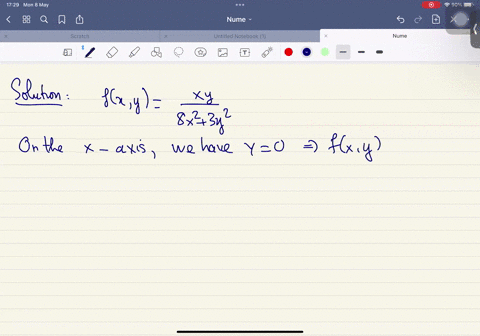 17:29 Mon 8 May
90%
Nume
Scratch
Untitled Notebook (1)
Nume
Solution: f(x,y) = xy / 8x²+3y²
On the x-axis, we have y=0 ⇒ f(x,y)